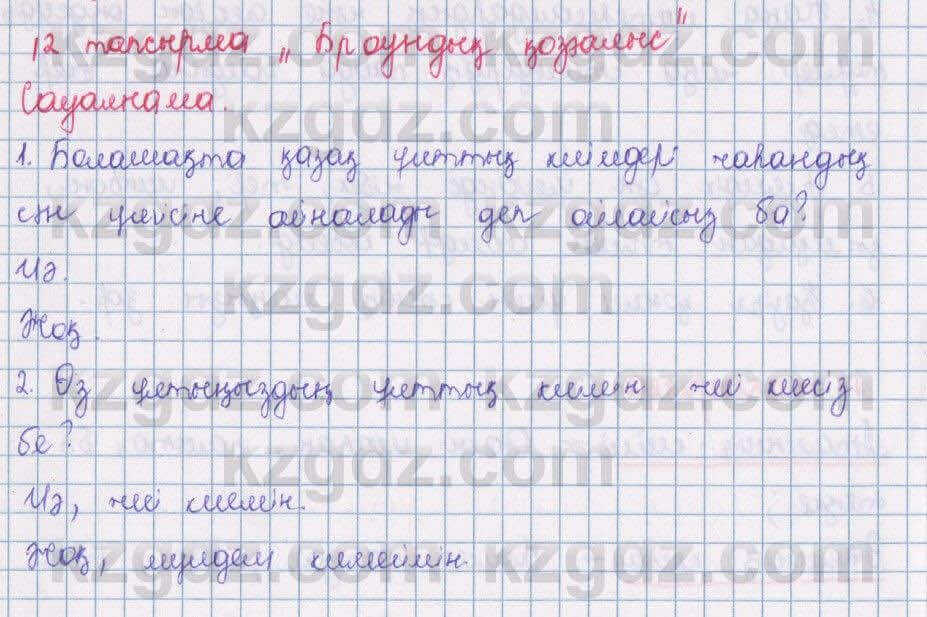 12 тапсырма „Броундық қозғалыс"
Сауалнама.
1. Болашақта қазақ ұлттық киімдері жаһандық
сән үлгісіне айналады деп ойлайсыз ба?
Иә.
Жоқ.
2. Өз ұлтыңыздың ұлттық киімін жиі киесіз
бе?
Иә, жиі киемін.
Жоқ, мүлдем кимеймін.
kzgdz.com